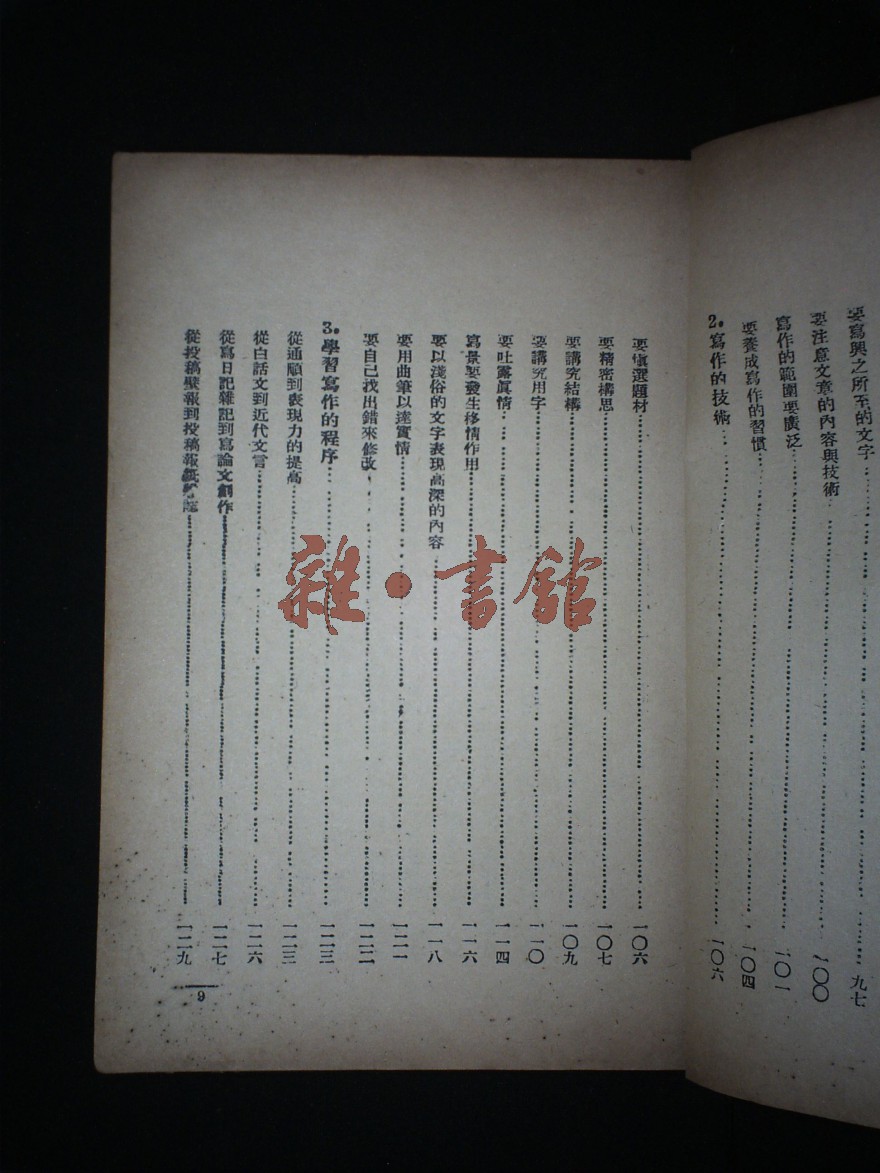 要寫興之所至的文字……九七
要注意文章的內容與技術……一〇〇
寫作的範圍要廣泛……一〇一
要養成寫作的習慣……一〇四
2.寫作的技術……一〇六
要慎選題材……一〇六
要精密構思……一〇七
要講究結構……一〇九
要講究用字……一一〇
要吐露眞情……一一四
寫景要發生移情作用……一一六
要以淺俗的文字表現高深的內容……一一八
要用曲筆以達實情……一二一
要自己找出錯來修改……一二二
3.學習寫作的程序……一二三
從通順到表現力的提高……一二三
從白話文到近代文言……一二六
從寫日記雜記到寫論文創作……一二七
從投稿壁報到投稿報紙……一二九
9
雜·書館